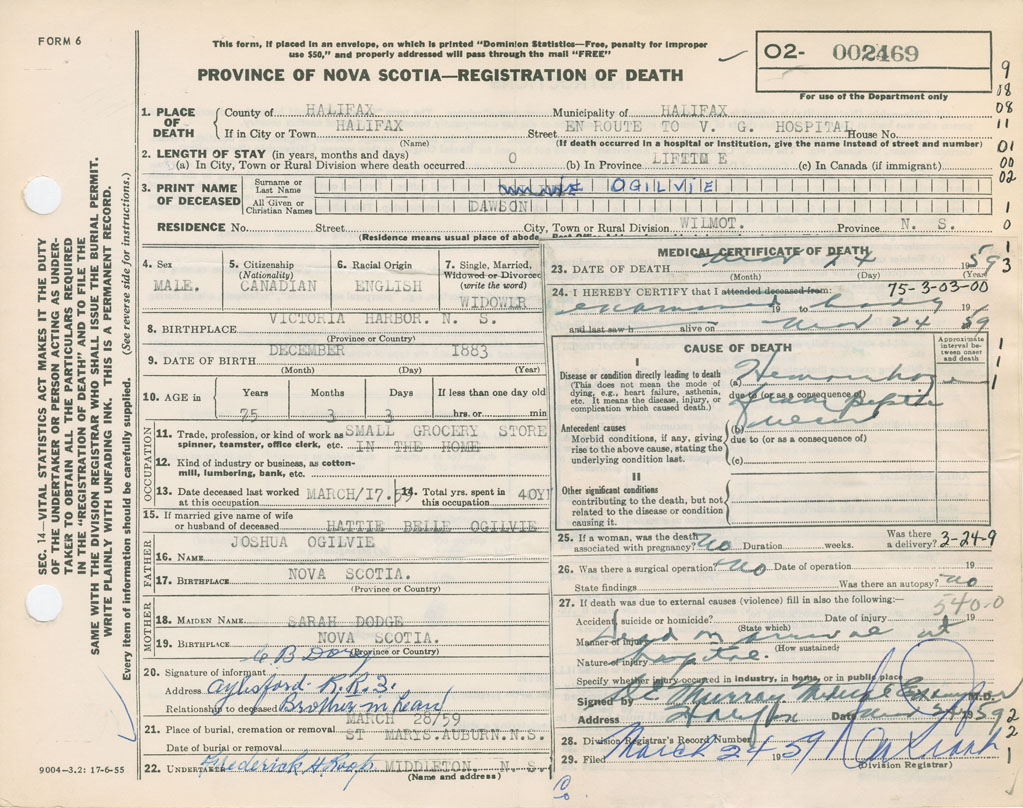 FORM 6
This form, if placed in an envelope, on which is printed "Dominion Statistics—Free, penalty for improper
use $50," and properly addressed will pass through the mail "FREE"
PROVINCE OF NOVA SCOTIA—REGISTRATION OF DEATH
02- 002469
For use of the Department only
9
08
08
11
01
00
02
1
0
1
3
1. PLACE OF DEATH
County of HALIFAX Municipality of HALIFAX
If in City or Town HALIFAX Street EN ROUTE TO V. G. HOSPITAL House No.
(Name) (If death occurred in a hospital or institution, give the name instead of street and number)
2. LENGTH OF STAY (in years, months and days)
(a) In City, Town or Rural Division where death occurred 0 (b) In Province LIFTIM E (c) In Canada (if immigrant)
3. PRINT NAME OF DECEASED
Surname or Last Name OGILVIE
All Given or Christian Names DAWSON
RESIDENCE No. Street City, Town or Rural Division WILMOT. Province N. S.
(Residence means usual place of abode
4. Sex
MALE.
5. Citizenship
(Nationality)
CANADIAN
6. Racial Origin
ENGLISH
7. Single, Married,
Widowed or Divorced
(write the word)
WIDOWLR
8. BIRTHPLACE VICTORIA HARBOR. N. S.
(Province or Country)
9. DATE OF BIRTH DECEMBER 1883
(Month) (Day) (Year)
10. AGE in Years Months Days If less than one day old
75 3 3 hrs. or min
OCCUPATION
11. Trade, profession, or kind of work as SMALL GROCERY STORE
spinner, teamster, office clerk, etc. IN THE HOME
12. Kind of industry or business, as cotton-
mill, lumbering, bank, etc.
13. Date deceased last worked at this occupation. MARCH/17.59
14. Total yrs. spent in this occupation 40YI
15. If married give name of wife
or husband of deceased HATTIE BELLE OGILVIE
FATHER
16. Name JOSHUA OGILVIE
17. BIRTHPLACE NOVA SCOTIA.
(Province or Country)
MOTHER
18. MAIDEN NAME SARAH DODGE
19. BIRTHPLACE NOVA SCOTIA.
(Province or Country)
20. Signature of informant C B
Address Aylesford. R.R.3.
Relationship to deceased Brother in Lean
21. Place of burial, cremation or removal ST MARYS.AUBURN.N.S.
Date of burial or removal MARCH 28/59
22. UNDERTAKER Frederick A Roop MIDDLETON, N. S.
(Name and address)
MEDICAL CERTIFICATE OF DEATH
23. DATE OF DEATH Mar 24 59
(Month) (Day) (Year)
75-3-03-00
24. I HEREBY CERTIFY that I attended deceased from:
examined 19 to body 19
and last saw h alive on Mar 24 59
CAUSE OF DEATH
Approximate interval between onset and death
I
Disease or condition directly leading to death
(This does not mean the mode of
dying, e.g., heart failure, asthenia,
etc. It means the disease, injury, or
complication which caused death.)
(a) Hemorrhage
due to (or as a consequence of)
from peptic
Antecedent causes
Morbid conditions, if any, giving
rise to the above cause, stating the
underlying condition last.
(b) ulcer
due to (or as a consequence of)
(c)
1
1
1
II
Other significant conditions
contributing to the death, but not
related to the disease or condition
causing it.
25. If a woman, was the death
associated with pregnancy? no Duration weeks. Was there a delivery? 3-24-9
26. Was there a surgical operation? no Date of operation 19
State findings Was there an autopsy? no
27. If death was due to external causes (violence) fill in also the following:—
540-0
Accident, suicide or homicide? Date of injury 19
(State which)
Manner of injury Dead on arrival at
(How sustained)
Nature of injury hospital.
Specify whether injury occurred in industry, in home, or in public place
Signed by Murray Medical Examiner M.D.
Address Halifax Date Mar 24 1959
28. Division Registrar's Record Number
29. Filed March 24 1959
(Division Registrar)
2
2
1
SEC. 14—VITAL STATISTICS ACT MAKES IT THE DUTY
OF THE UNDERTAKER OR PERSON ACTING AS UNDER-
TAKER TO OBTAIN ALL THE PARTICULARS REQUIRED
IN THE "REGISTRATION OF DEATH" AND TO FILE THE
SAME WITH THE DIVISION REGISTRAR WHO SHALL ISSUE THE BURIAL PERMIT.
WRITE PLAINLY WITH UNFADING INK. THIS IS A PERMANENT RECORD.
Every item of information should be carefully supplied. (See reverse side for instructions.)
9004-3.2: 17-6-55